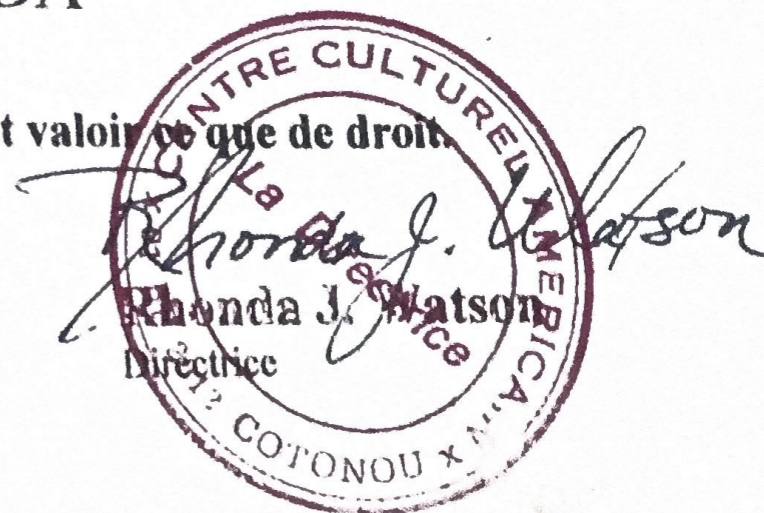 t valoir ce que de droit.
CENTRE CULTUREL AMERICAIN
La Directrice
COTONOU
Rhonda J. Watson
Rhonda J. Watson
Directrice